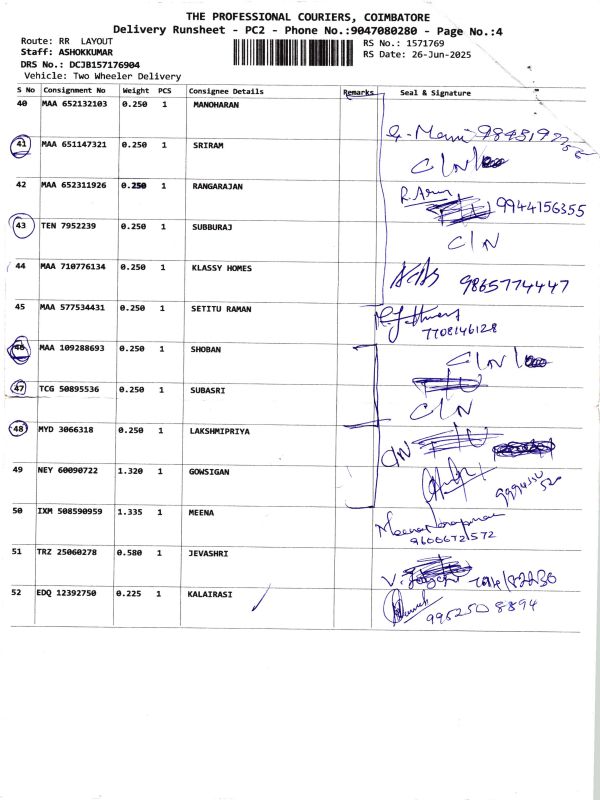 THE PROFESSIONAL COURIERS, COIMBATORE
Delivery Runsheet - PC2 - Phone No.:9047080280 - Page No.:4
Route: RR LAYOUT
RS No.: 1571769
Staff: ASHOKKUMAR
RS Date: 26-Jun-2025
DRS No.: DCJB157176904
Vehicle: Two Wheeler Delivery
S No Consignment No Weight PCS Consignee Details Remarks Seal & Signature
40 MAA 652132103 0.250 1 MANOHARAN
41 MAA 651147321 0.250 1 SRIRAM
C/N
42 MAA 652311926 0.250 1 RANGARAJAN
9944156355
43 TEN 7952239 0.250 1 SUBBURAJ
C/N
44 MAA 710776134 0.250 1 KLASSY HOMES
9865774447
45 MAA 577534431 0.250 1 SETITU RAMAN
7708146128
46 MAA 109288693 0.250 1 SHOBAN
C/N
47 TCG 50895536 0.250 1 SUBASRI
C/N
48 MYD 3066318 0.250 1 LAKSHMIPRIYA
C/N
49 NEY 60090722 1.320 1 GOWSIGAN
50 IXM 508590959 1.335 1 MEENA
96006721572
51 TRZ 25060278 0.580 1 JEVASHRI
52 EDQ 12392750 0.225 1 KALAIRASI
9952508894